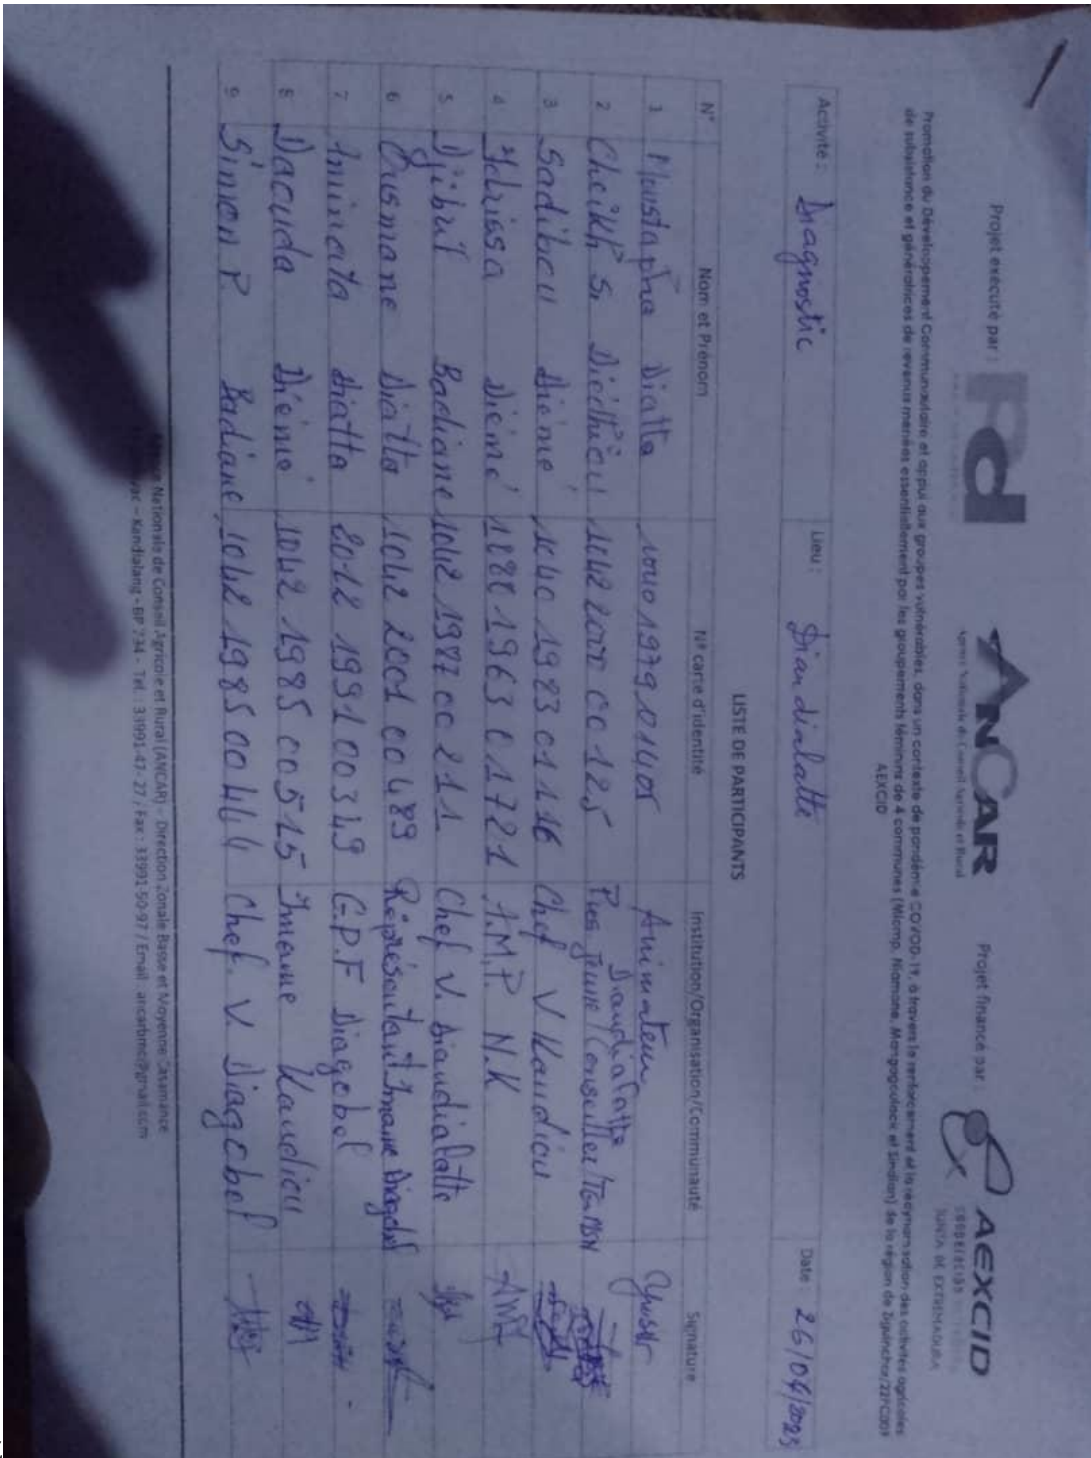 Projet exécuté par : Pd ANCAR Projet financé par : AEXCID
Agence Nationale de Conseil Agricole et Rural
JUNTA DE EXTREMADURA
Promotion du Développement Communautaire et appui aux groupes vulnérables, dans un contexte de pandémie COVOD-19, à travers le renforcement et la redynamisation des activités agricoles
de subsistance et génératrices de revenus menées essentiellement par les groupements féminins de 4 communes (Mlomp, Niamone, Mangagoulack et Sindian) de la région de Ziguinchor/22PC009
AEXCID
Activité : Diagnostic Lieu : Diandialatte Date : 26/04/2023
LISTE DE PARTICIPANTS
N° Nom et Prénom N° carte d'identité Institution/Organisation/Communauté Signature
1 Moustapha Diatta 1040 1979 01405 Animateur
Diandialatte
2 Cheikh S. Diédhiou Pres Jeune/Conseiller
3 Sadibou Diémé 1040 1983 01116 Chef V Kandiou
4 Ydrissa Diémé 1880 1963 01721 A.M.P. N.K
5 Djibril Badiane 1042 1987 00211 Chef V. Diandialatte
6 Ousmane Diatta 1042 2001 00489 Réprésentant Imame Diagobel
7 Aminata Diatta 2042 1991 00349 G.P.F Diagobel
8 Daouda Diémé 1042 1985 00515 Imame Kandiou
9 Simon P. Badiane 1042 1985 00444 Chef. V. Diagobel
Nationale de Conseil Agricole et Rural (ANCAR) - Direction Zonale Basse et Moyenne Casamance
– Kandialang - BP 734 - Tel : 33991-47-27 / Fax : 33991-50-97 / Email : ancarbmc@gmail.com